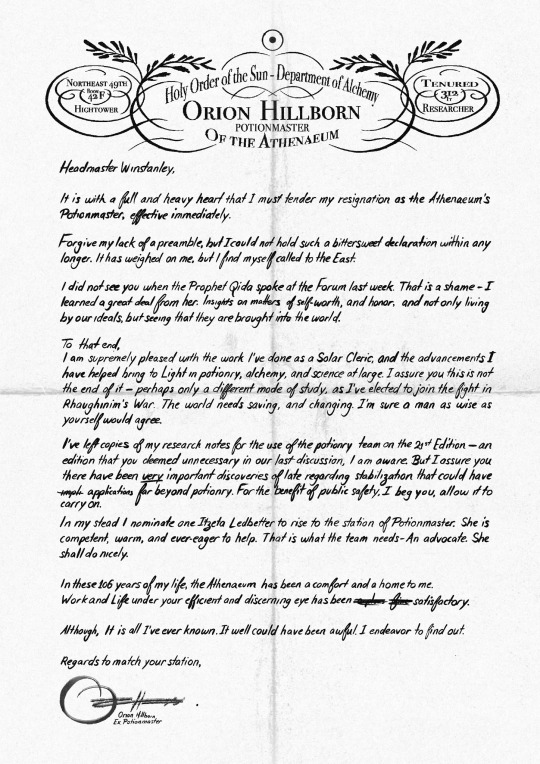 Holy Order of the Sun - Department of Alchemy
Northeast 49th
Room
42F
Hightower
Orion Hillborn
Potionmaster
Of the Athenaeum
Tenured
312
Researcher
Headmaster Winstanley,
It is with a full and heavy heart that I must tender my resignation as the Athenaeum's
Potionmaster, effective immediately.
Forgive my lack of a preamble, but I could not hold such a bittersweet declaration within any
longer. It has weighed on me, but I find myself called to the East.
I did not see you when the Prophet Qida spoke at the Forum last week. That is a shame - I
learned a great deal from her. Insights on matters of self-worth, and honor, and not only living
by our ideals, but seeing that they are brought into the world.
To that end,
I am supremely pleased with the work I've done as a Solar Cleric, and the advancements I
have helped bring to Light in potionry, alchemy, and science at large. I assure you this is not
the end of it – perhaps only a different mode of study, as I've elected to join the fight in
Rhaughinim's War. The world needs saving, and changing. I'm sure a man as wise as
yourself would agree.
I've left copies of my research notes for the use of the potionry team on the 21st Edition – an
edition that you deemed unnecessary in our last discussion, I am aware. But I assure you
there have been very important discoveries of late regarding stabilization that could have
impli applications far beyond potionry. For the benefit of public safety, I beg you, allow it to
carry on.
In my stead I nominate one Itzela Ledbetter to rise to the station of Potionmaster. She is
competent, warm, and ever-eager to help. That is what the team needs - An advocate. She
shall do nicely.
In these 106 years of my life, the Athenaeum has been a comfort and a home to me.
Work and Life under your efficient and discerning eye has been satisfactory.
Although, It is all I've ever known. It well could have been awful. I endeavor to find out.
Regards to match your station,
Orion Hillborn
Ex Potionmaster